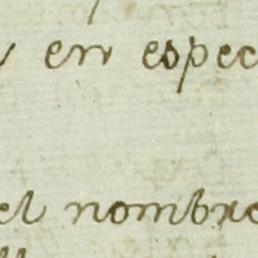 en espec
el nombre